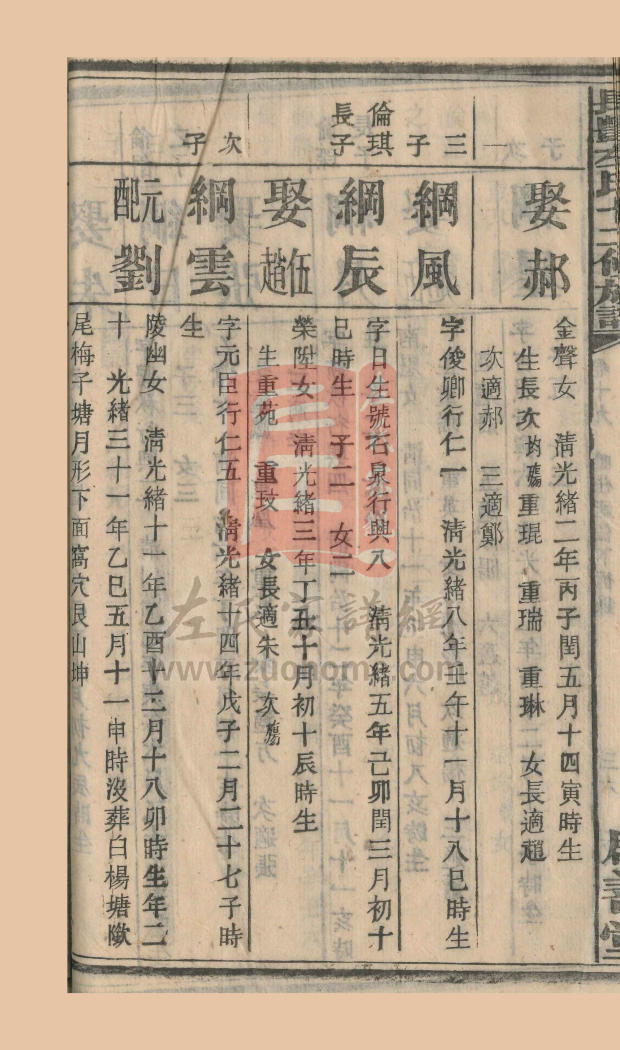 娶郝
金聲女　清光緒二年丙子閏五月十四寅時生
生長次均殤重琨　重瑞　重琳　女長適趙
一
次適郝　三適鄭
三子
綱風
字俊卿行仁一　清光緒八年壬午十一月十八巳時生
倫琪長子
綱辰
字日生號石泉行興八　清光緒五年己卯閏三月初十
巳時生　子二　女二
娶伍趙
榮陞女　清光緒三年丁丑十月初十辰時生
生重苑　重玟　女長適朱　次殤
次子
綱雲
字元臣行仁五　清光緒十四年戊子二月二十七子時
生
元配劉
陵幽女　清光緒十一年乙酉十二月十八卯時生年二
十　光緒三十一年乙巳五月十一申時沒葬白楊塘墩
尾梅子塘月形下面窩穴艮山坤
氏十二修族譜
善堂
左氏宗譜網
www.zuohome.com